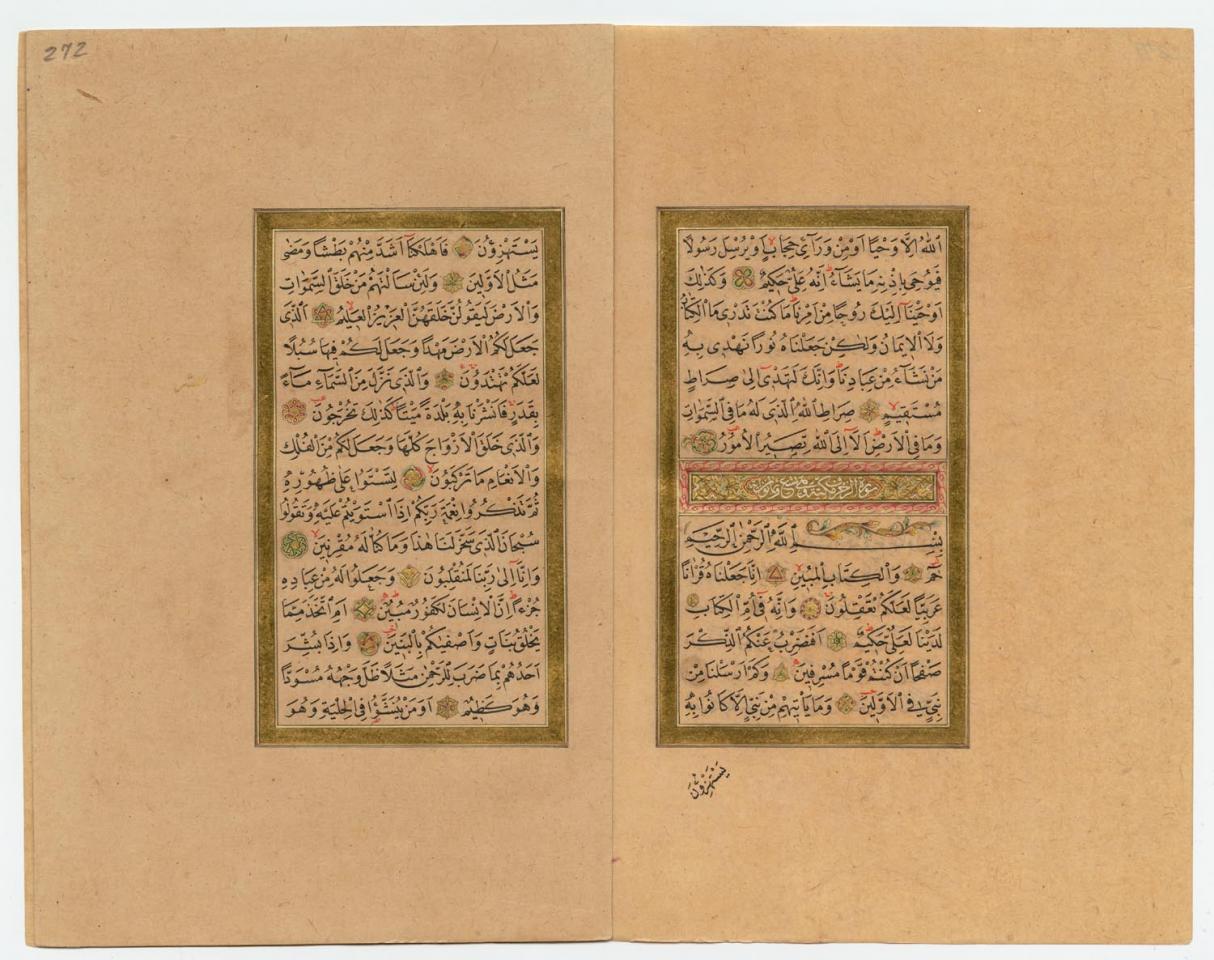 اَللّٰهُ اِلَّا وَحْيًا اَوْ مِنْ وَرَآئِ حِجَابٍ اَوْ يُرْسِلَ رَسُولًا
فَيُوحِيَ بِاِذْنِهِ مَا يَشَاءُ اِنَّهُ عَلِيٌّ حَكِيمٌ وَكَذٰلِكَ
اَوْحَيْنَا اِلَيْكَ رُوحًا مِنْ اَمْرِنَا مَا كُنْتَ تَدْرِي مَا الْكِتَابُ
وَلَا الْاِيمَانُ وَلٰكِنْ جَعَلْنَاهُ نُورًا نَهْدِي بِهِ
مَنْ نَشَاءُ مِنْ عِبَادِنَا وَاِنَّكَ لَتَهْدِي اِلٰى صِرَاطٍ
مُسْتَقِيمٍ صِرَاطِ اللّٰهِ الَّذِي لَهُ مَا فِي السَّمٰوَاتِ
وَمَا فِي الْاَرْضِ اَلَا اِلَى اللّٰهِ تَصِيرُ الْاُمُورُ
سورة الزخرف مكية وهي تسع وثمانون اية
بِسْمِ اللّٰهِ الرَّحْمٰنِ الرَّحِيمِ
حٰمٓ وَالْكِتَابِ الْمُبِينِ اِنَّا جَعَلْنَاهُ قُرْاٰنًا
عَرَبِيًّا لَعَلَّكُمْ تَعْقِلُونَ وَاِنَّهُ فِي اُمِّ الْكِتَابِ
لَدَيْنَا لَعَلِيٌّ حَكِيمٌ اَفَنَضْرِبُ عَنْكُمُ الذِّكْرَ
صَفْحًا اَنْ كُنْتُمْ قَوْمًا مُسْرِفِينَ وَكَمْ اَرْسَلْنَا مِنْ
نَبِيٍّ فِي الْاَوَّلِينَ وَمَا يَاْتِيهِمْ مِنْ نَبِيٍّ اِلَّا كَانُوا بِهِ
يَسْتَهْزِؤُنَ
272
يَسْتَهْزِؤُنَ فَاَهْلَكْنَا اَشَدَّ مِنْهُمْ بَطْشًا وَمَضٰى
مَثَلُ الْاَوَّلِينَ وَلَئِنْ سَاَلْتَهُمْ مَنْ خَلَقَ السَّمٰوَاتِ
وَالْاَرْضَ لَيَقُولُنَّ خَلَقَهُنَّ الْعَزِيزُ الْعَلِيمُ اَلَّذِي
جَعَلَ لَكُمُ الْاَرْضَ مَهْدًا وَجَعَلَ لَكُمْ فِيهَا سُبُلًا
لَعَلَّكُمْ تَهْتَدُونَ وَالَّذِي نَزَّلَ مِنَ السَّمَاءِ مَاءً
بِقَدَرٍ فَاَنْشَرْنَا بِهِ بَلْدَةً مَيْتًا كَذٰلِكَ تُخْرَجُونَ
وَالَّذِي خَلَقَ الْاَزْوَاجَ كُلَّهَا وَجَعَلَ لَكُمْ مِنَ الْفُلْكِ
وَالْاَنْعَامِ مَا تَرْكَبُونَ لِتَسْتَوُا عَلٰى ظُهُورِهِ
ثُمَّ تَذْكُرُوا نِعْمَةَ رَبِّكُمْ اِذَا اسْتَوَيْتُمْ عَلَيْهِ وَتَقُولُوا
سُبْحَانَ الَّذِي سَخَّرَ لَنَا هٰذَا وَمَا كُنَّا لَهُ مُقْرِنِينَ
وَاِنَّا اِلٰى رَبِّنَا لَمُنْقَلِبُونَ وَجَعَلُوا لَهُ مِنْ عِبَادِهِ
جُزْءًا اِنَّ الْاِنْسَانَ لَكَفُورٌ مُبِينٌ اَمِ اتَّخَذَ مِمَّا
يَخْلُقُ بَنَاتٍ وَاَصْفٰيكُمْ بِالْبَنِينَ وَاِذَا بُشِّرَ
اَحَدُهُمْ بِمَا ضَرَبَ لِلرَّحْمٰنِ مَثَلًا ظَلَّ وَجْهُهُ مُسْوَدًّا
وَهُوَ كَظِيمٌ اَوَمَنْ يُنَشَّؤُا فِي الْحِلْيَةِ وَهُوَ